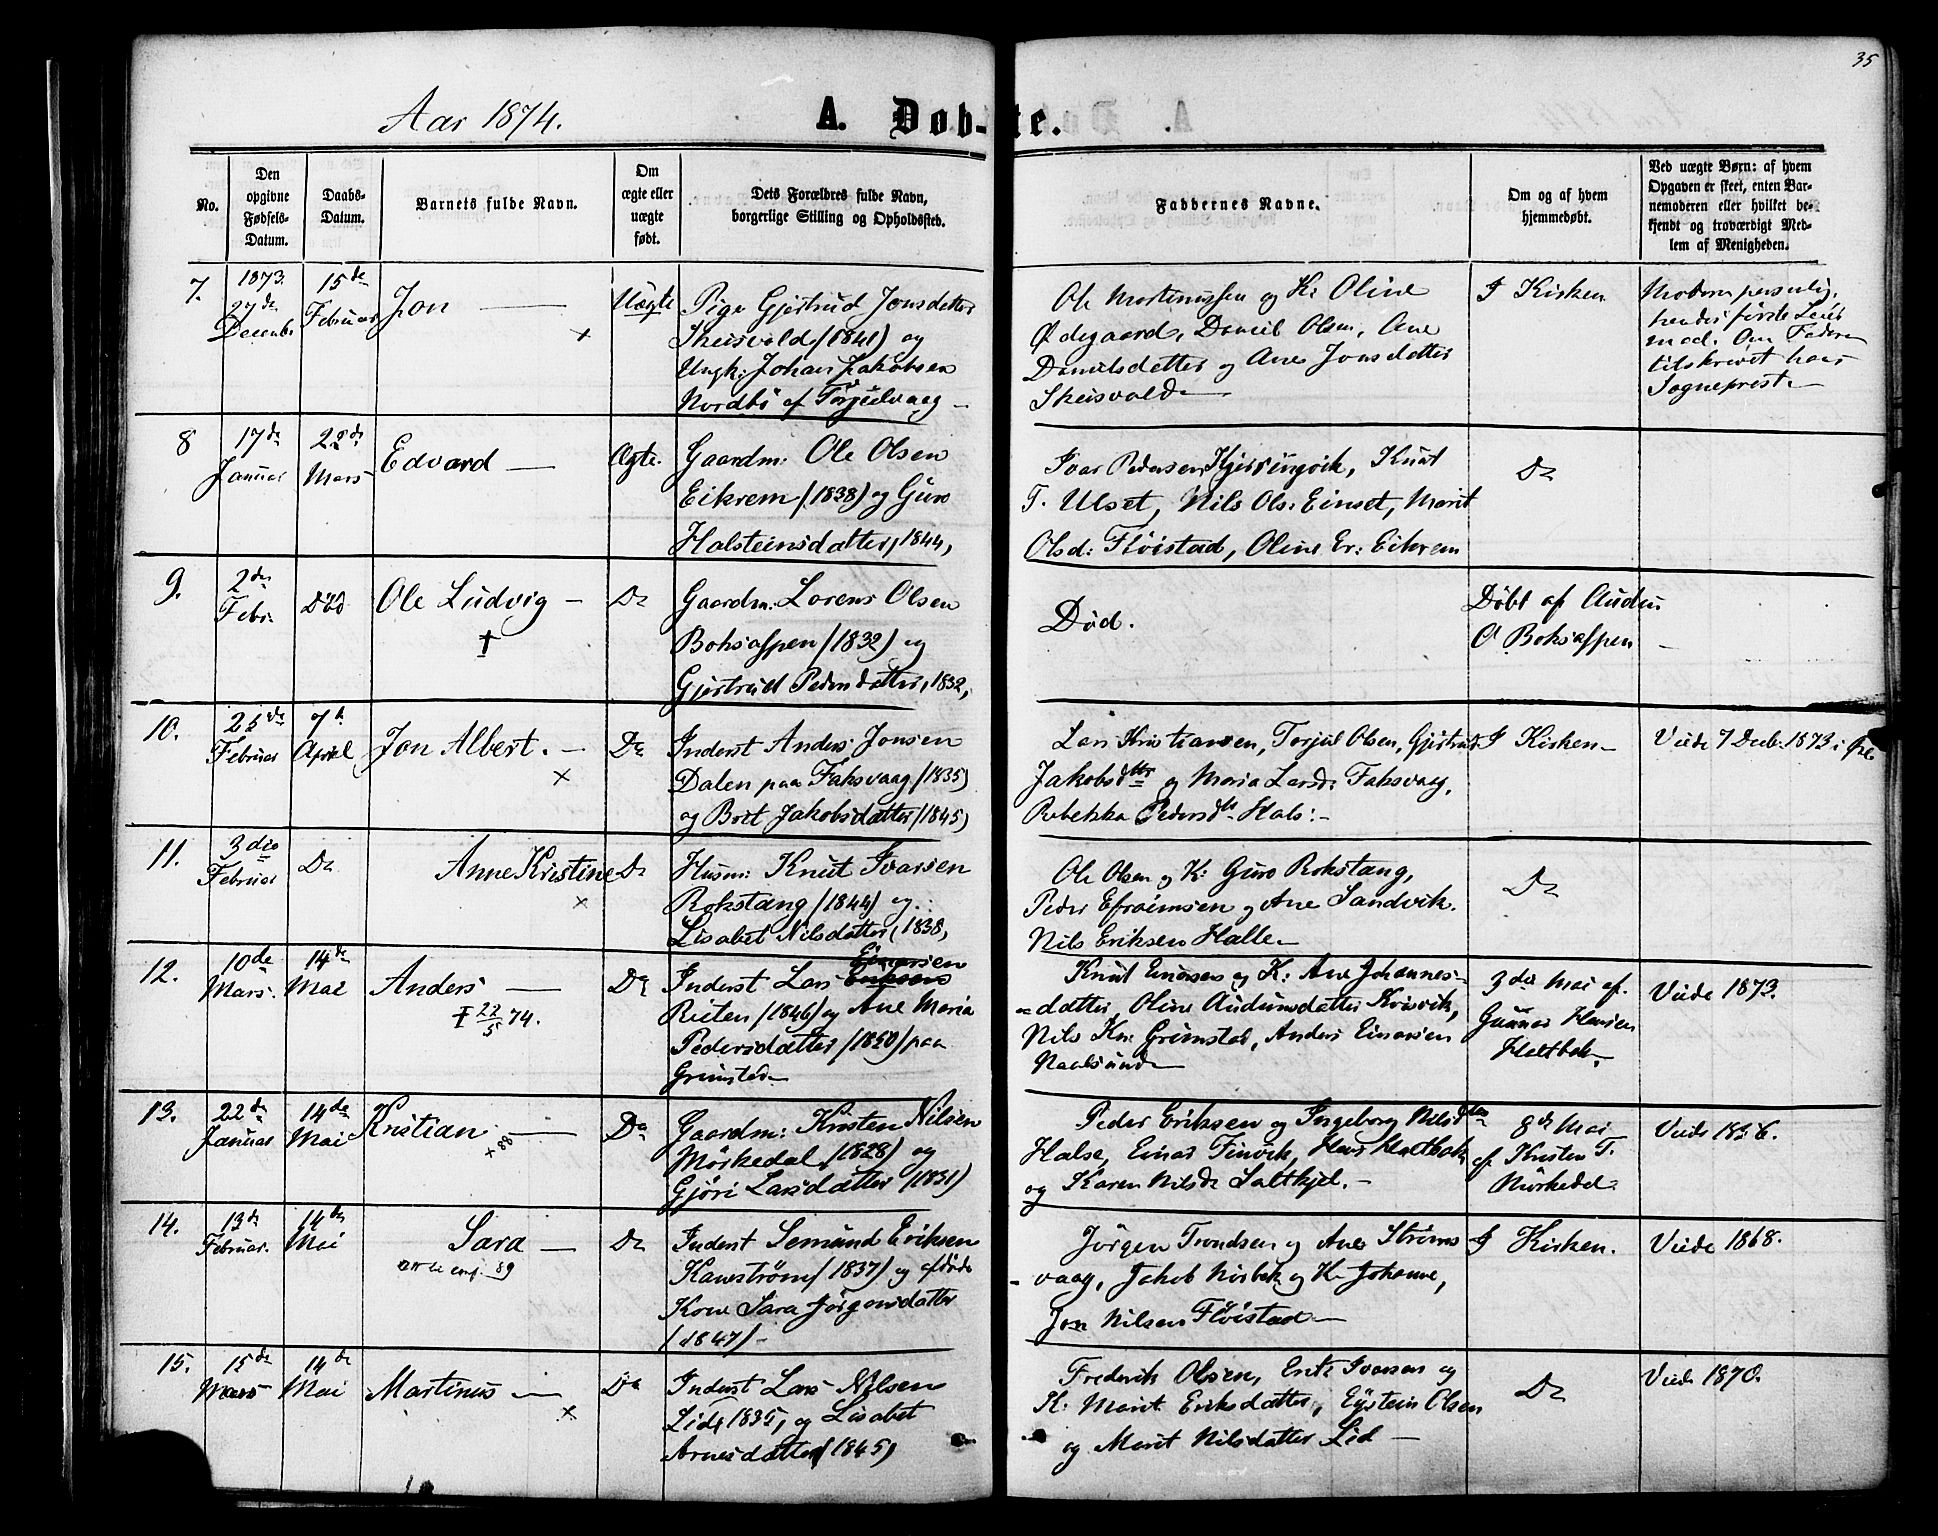 35
Aar 1874. A. Døb-te.
No.
Den opgivne Fødsels-Datum.
Daabs-Datum.
Barnets fulde Navn.
Om ægte eller uægte født.
Dets Forældres fulde Navn, borgerlige Stilling og Opholdssted.
Faddernes Navne.
Om og af hvem hjemmedøbt.
Ved uægte Børn: af hvem Opgaven er skeet, enten Barnemoderen eller hvilket bekjendt og troværdigt Medlem af Menigheden.
7.
1873.
27de
Decembr
15de
Februar
Jon
×
Uægte
Pige Gjertrud Jonsdatter
Skeisvold (1841) og
Ungk: Johan Jakobsen
Nordbö af Torjulvaag
Ole Mortinussen og K: Oline
Ødegaard, Daniel Olsen, Ane
Danielsdatter og Ane Jonsdatter
Skeisvold
I Kirken
Moderen personlig,
hendes første Leier
maal. Om Faderen
tilskrevet hans
Sogneprest
8
17de
Januar
22de
Mars
Edvard
Ægte.
Gaardm: Ole Olsen
Eikrem (1838) og Guro
Halsteinsdatter, 1844,
Ivar Pedersen Kjerringvik, Knut
T. Ulset, Nils Ols: Einset, Marit
Olsd: Flöistad, Oline Er: Eikrem
Do
9.
2den
Febr.
Död
Ole Ludvig
†
Do
Gaardm: Lorens Olsen
Boksaspen (1832) og
Gjertrud Pedersdatter, 1832,
Död.
Döbt af Audun
O Boksaspen
10.
25de
Februar
7de
April
Jon Albert.
×
Do
Inderst Anders Jonsen
Dalen paa Faksvaag (1835)
og Brit Jakobsdatter (1845)
Lars Kristiansen, Torjul Olsen, Gjertrud
Jakobsdtr og Maria Larsd: Faksvaag,
Rebekka Pedersdt Hals:
I Kirken
Viede 7 Decb. 1873 i Øre
11.
3die
Februar
Do
Anne Kristine
×
Do
Husm: Knut Ivarsen
Rokstang (1844) og
Lisabet Nilsdatter, (1838,
Ole Olsen og K: Guro Rokstang,
Peder Efraimsen og Ane Sandvik.
Nils Eriksen Halle
Do
12.
10de
Mars.
14de
Mai
Anders
† 22/5 74.
Do
Einarsen
Inderst Lars Eriksen
Reiten (1846) og Ane Maria
Pedersdatter (1850) paa
Grimstad
Knut Einarsen og K: Ane Johannes-
datter, Oline Audunsdatter Krisvik,
Nils Kn: Grimstad, Anders Einarsen
Naalsund
3die Mai af
Gunnar Hansen
Haltbak
Viede 1873.
13.
22de
Januar
14de
Mai
Kristian
× 88
Do
Gaardm: Kristen Nilsen
Mörkedal, (1828) og
Gjöri Larsdatter (1831)
Peder Eriksen og Ingeborg Nilsdtr
Halse, Einar Finvik, Hans Haltbak
og Karen Nilsd: Saltkjel.
8de Mai
af Kristen T.
Mörkedal
Viede 1856.
14.
13de
Februar.
14de
Mai
Sara
89
Do
Inderst Semund Eriksen
Kaneström (1837) og afdöde
Kone Sara Jörgensdatter
(1847)
Jörgen Trondsen og Ane Ströms
vaag, Jakob Nörbek og K: Johanne,
Jon Nilsen Flöistad
I Kirken.
Viede 1868.
15.
15de
Mars
14de
Mai
Martinus
×
Do
Inderst Lars Nilsen
Lid, 1835, og Lisabet
Arnesdatter (1845)
Frederik Olsen, Erik Ivarsen og
K: Marit Eriksdatter, Eystein Olsen
og Marit Nilsdatter Lid
Do
Viede 1870.